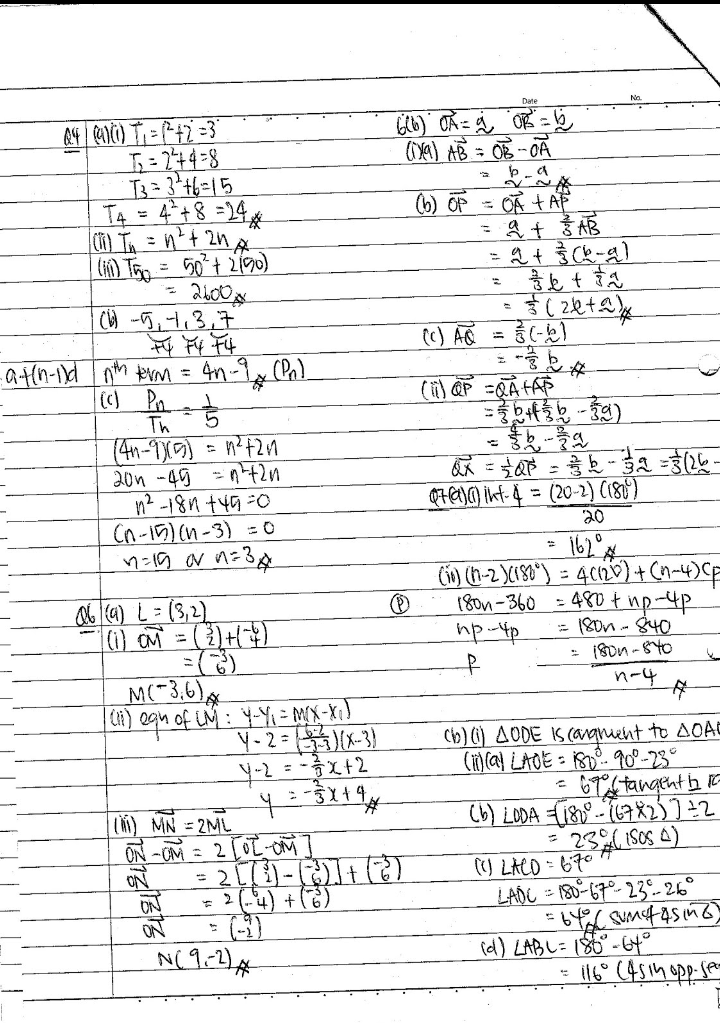 Date No.
Q4 (a)(i) T₁ = 1² + 2 = 3
T₂ = 2² + 4 = 8
T₃ = 3² + 6 = 15
T₄ = 4² + 8 = 24
(ii) Tn = n² + 2n
(iii) T₅₀ = 50² + 2(50)
= 2600
(b) -5, -1, 3, 7
+4 +4 +4
a+(n-1)d nth term = 4n - 9 (Pn)
(c) Pn/Tn = 1/5
(4n-9)(5) = n² + 2n
20n - 45 = n² + 2n
n² - 18n + 45 = 0
(n-15)(n-3) = 0
n = 15 or n = 3
Q6 (a) L = (3,2)
(i) OM = (3 2) + (-6 4)
= (-3 6)
M(-3,6)
(ii) eqn of LM : y-y₁ = m(x-x₁)
y-2 = (6-2/-3-3)(x-3)
y-2 = -2/3x + 2
y = -2/3x + 4
(iii) MN = 2ML
ON - OM = 2[OL - OM]
ON = 2[(3 2) - (-3 6)] + (-3 6)
ON = 2(6 -4) + (-3 6)
ON = (9 -2)
N(9,-2)
6(b) OA = a OB = b
(i)(a) AB = OB - OA
= b - a
(b) OP = OA + AP
= a + 2/3 AB
= a + 2/3(b - a)
= 2/3 b + 1/3 a
= 1/3(2b + a)
(c) AQ = 2/3(-b)
= -2/3 b
(ii) QP = QA + AP
= 2/3 b + (2/3 b - 2/3 a)
= 4/3 b - 2/3 a
QX = 1/2 QP = 2/3 b - 1/3 a = 1/3(2b -
Q7(a)(i) int. ∠ = (20-2)(180°)/20
= 162°
(ii) (n-2)(180°) = 4(120°) + (n-4)(p
P 180n - 360 = 480 + np - 4p
np - 4p = 180n - 840
p = 180n - 840/n-4
(b)(i) △ODE is congruent to △OA
(ii)(a) ∠AOE = 180° - 90° - 23°
= 67° (tangent ⊥
(b) ∠ODA = [180° - (67×2)] ÷ 2
= 23° (isos △)
(c) ∠ACD = 67°
∠ADC = 180° - 67° - 23° - 26°
= 64° (sum of ∠s in △)
(d) ∠ABC = 180° - 64°
= 116° (∠s in opp. se